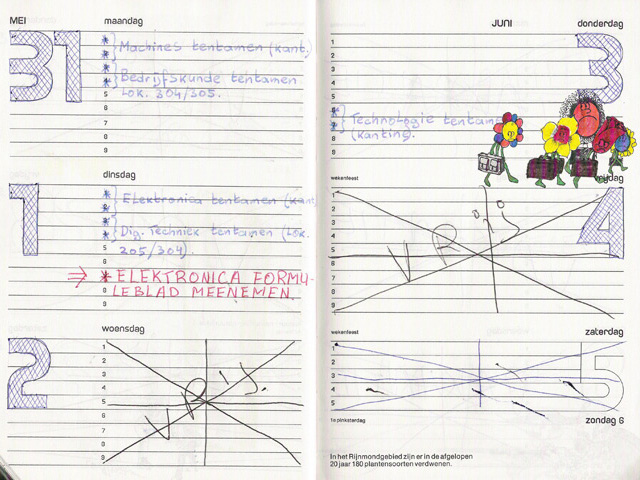 MEI
maandag
31
* } Machines tentamen (kant.
*
* } Bedrijfskunde tentamen
*
5 Lok. 304/305.
6
7
8
9
dinsdag
1
* } Elektronica tentamen (kant
*
* } Dig. Techniek tentamen (Lok.
*
5 205/304).
6
⇒ * ELEKTRONICA FORMU-
8 LEBLAD MEENEMEN.
9
woensdag
2
1
2
3
4
5
6
7
8
9
VRIJ.
JUNI
donderdag
3
1
2
3
4
5
* } Technologie tentam
* (kantine).
8
9
wekenfeest
vrijdag
4
1
2
3
4
5
6
7
8
9
VRIJ
wekenfeest
zaterdag
5
1
2
3
4
5
1e pinksterdag
zondag 6
In het Rijnmondgebied zijn er in de afgelopen
20 jaar 180 plantensoorten verdwenen.